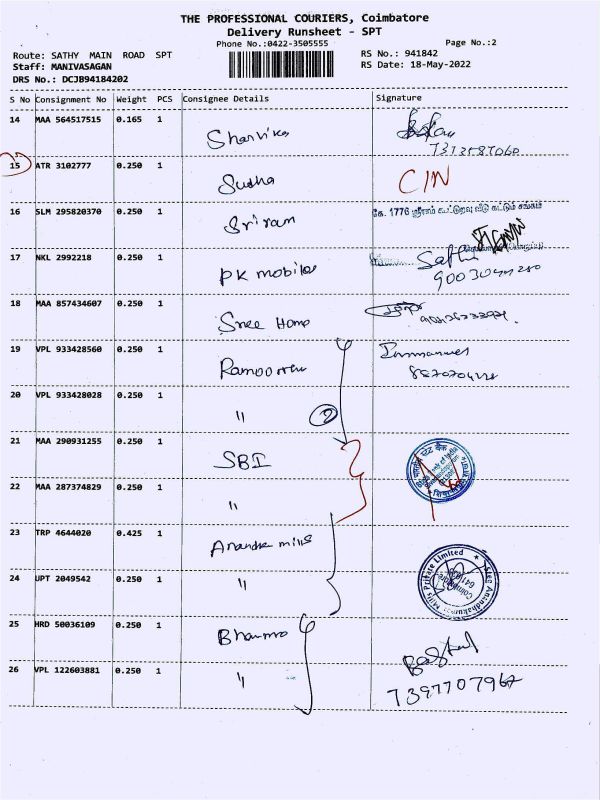 THE PROFESSIONAL COURIERS, Coimbatore
Delivery Runsheet - SPT
Phone No.:0422-3505555
Page No.:2
Route: SATHY MAIN ROAD SPT
RS No.: 941842
Staff: MANIVASAGAN
RS Date: 18-May-2022
DRS No.: DCJB94184202
S No Consignment No Weight PCS Consignee Details Signature
14 MAA 564517515 0.165 1 Sharvika
15 ATR 3102777 0.250 1 Sudha CIN
16 SLM 295820370 0.250 1 Sriram கே. 1776
17 NKL 2992218 0.250 1 PK mobiles Sathi
18 MAA 857434607 0.250 1 Sree Home
19 VPL 933428560 0.250 1 Ramoorthi
20 VPL 933428028 0.250 1 " 2
21 MAA 290931255 0.250 1 SBI
22 MAA 287374829 0.250 1 "
23 TRP 4644020 0.425 1 Anandha mills
24 UPT 2049542 0.250 1 " Mills Private Limited
25 HRD 50036109 0.250 1
26 VPL 122603881 0.250 1 "
7397707967